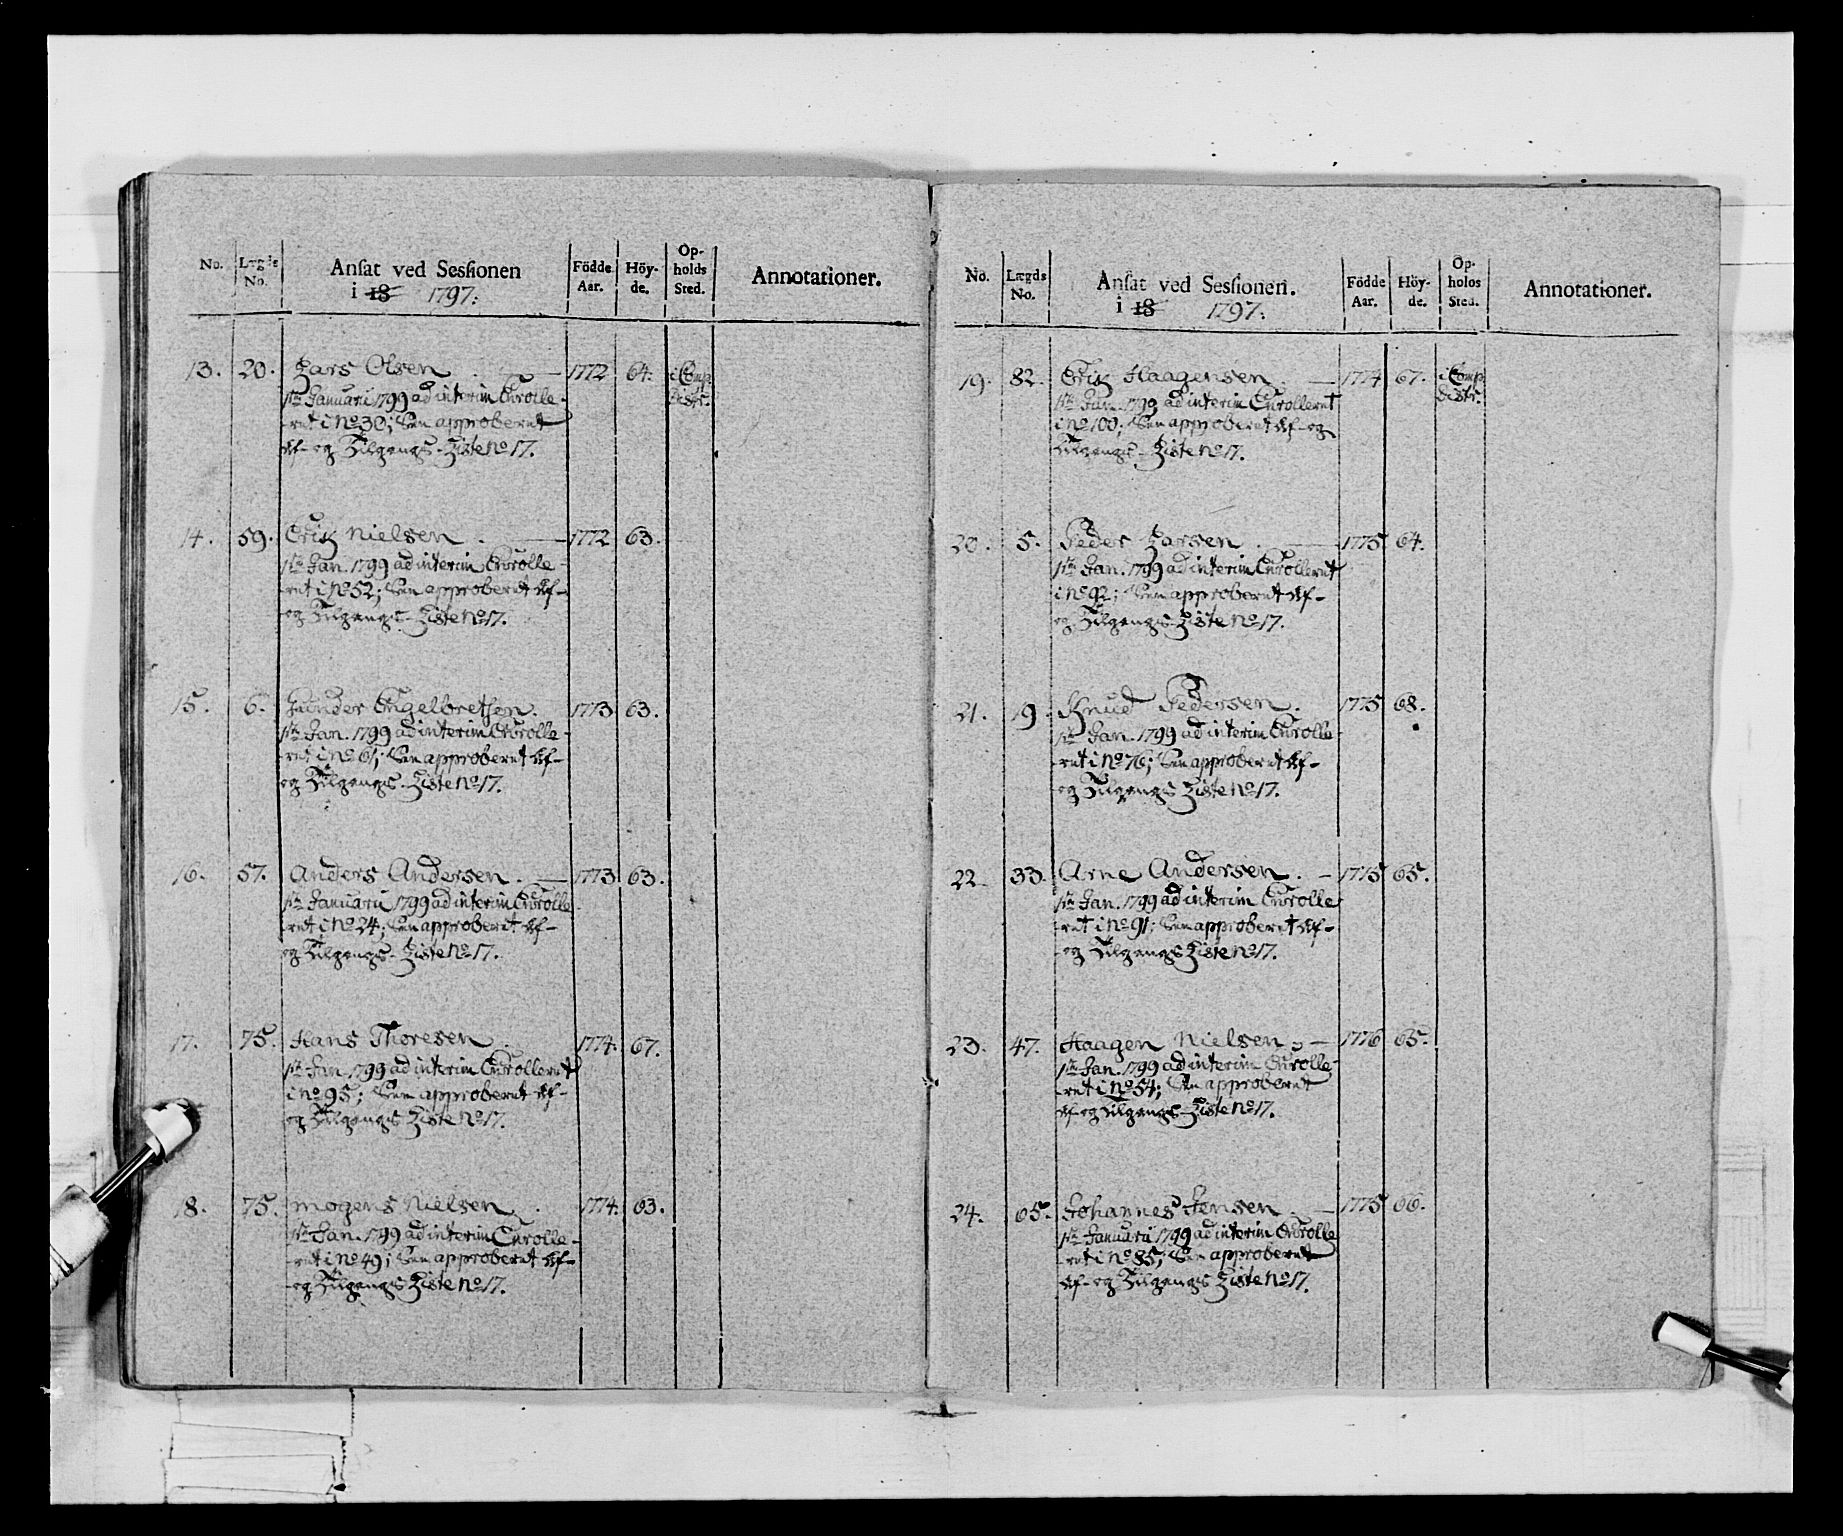 No. Lægds No. Ansat ved Sessionen i 18 1797. Födde Aar. Höy- de. Op- holds Sted. Annotationer.
13. 20. Lars Olsen . — 1772 64. i Comp. Distr.
1ste Januari 1799 ad interim Enrolle-
ret i No 30; Een approberet
Af- og Tilgangs-Liste No 17.
14. 59. Erik Nielsen . — 1772 63.
1ste Jan. 1799 ad interim Enrolle-
ret i No 52; Een approberet Af-
og Tilgangs-Liste No 17.
15. 6. Gunder Engelbretsen. 1773 63.
1ste Jan. 1799 ad interim Enrolle-
ret i No 61; Een approberet Af-
og Tilgangs-Liste No 17.
16. 57. Anders Andersen . — 1773 63.
1ste Januarii 1799 ad interim Enrolle
ret i No 24; Een approberet Af-
og Tilgangs-Liste No 17.
17. 75. Hans Thoresen . 1774. 67.
1ste Jan. 1799 ad interim Enrolleret
i No 95; Een approberet Af-
og Tilgangs Liste No 17.
18. 75. Mogens Nielsen . 1774. 63.
1ste Jan. 1799 ad interim Enrolle-
ret i No 49; Een approberet Af-
og Tilgangs Liste No 17.
No. Lægds No. Ansat ved Sessionen. i 18 1797. Födde Aar. Höy- de. Op- holds Sted. Annotationer.
19. 82. Erik Haagensen . — 1774 67. i Comp. Distr.
1ste Jan. 1799 ad interim Enrolleret
i No 100; Een approberet Af- og
Tilgangs-Liste No 17.
20. 5. Peder Larsen . — 1775 64.
1ste Jan. 1799 ad interim Enrolleret
i No 92; Een approberet Af-
og Tilgangs Liste No 17.
21. 19. Knud Pedersen . 1775 68.
1ste Jan. 1799 ad interim Enrolle-
ret i No 76; Een approberet Af-
og Tilgangs Liste No 17.
22. 33. Arne Andersen . — 1775 65.
1ste Jan. 1799 ad interim Enrolle
ret i No 91; Een approberet Af-
og Tilgangs Liste No 17.
23. 47. Haagen Nielsen . — 1776 65.
1ste Jan. 1799 ad interim Enrolle-
ret i No 54; Een approberet
Af- og Tilgangs-Liste No 17.
24. 65. Johannes Jensen . — 1775 66.
1ste Januarii 1799 ad interim Enrolle
ret i No 85; Een approberet
Af- og Tilgangs Liste No 17.